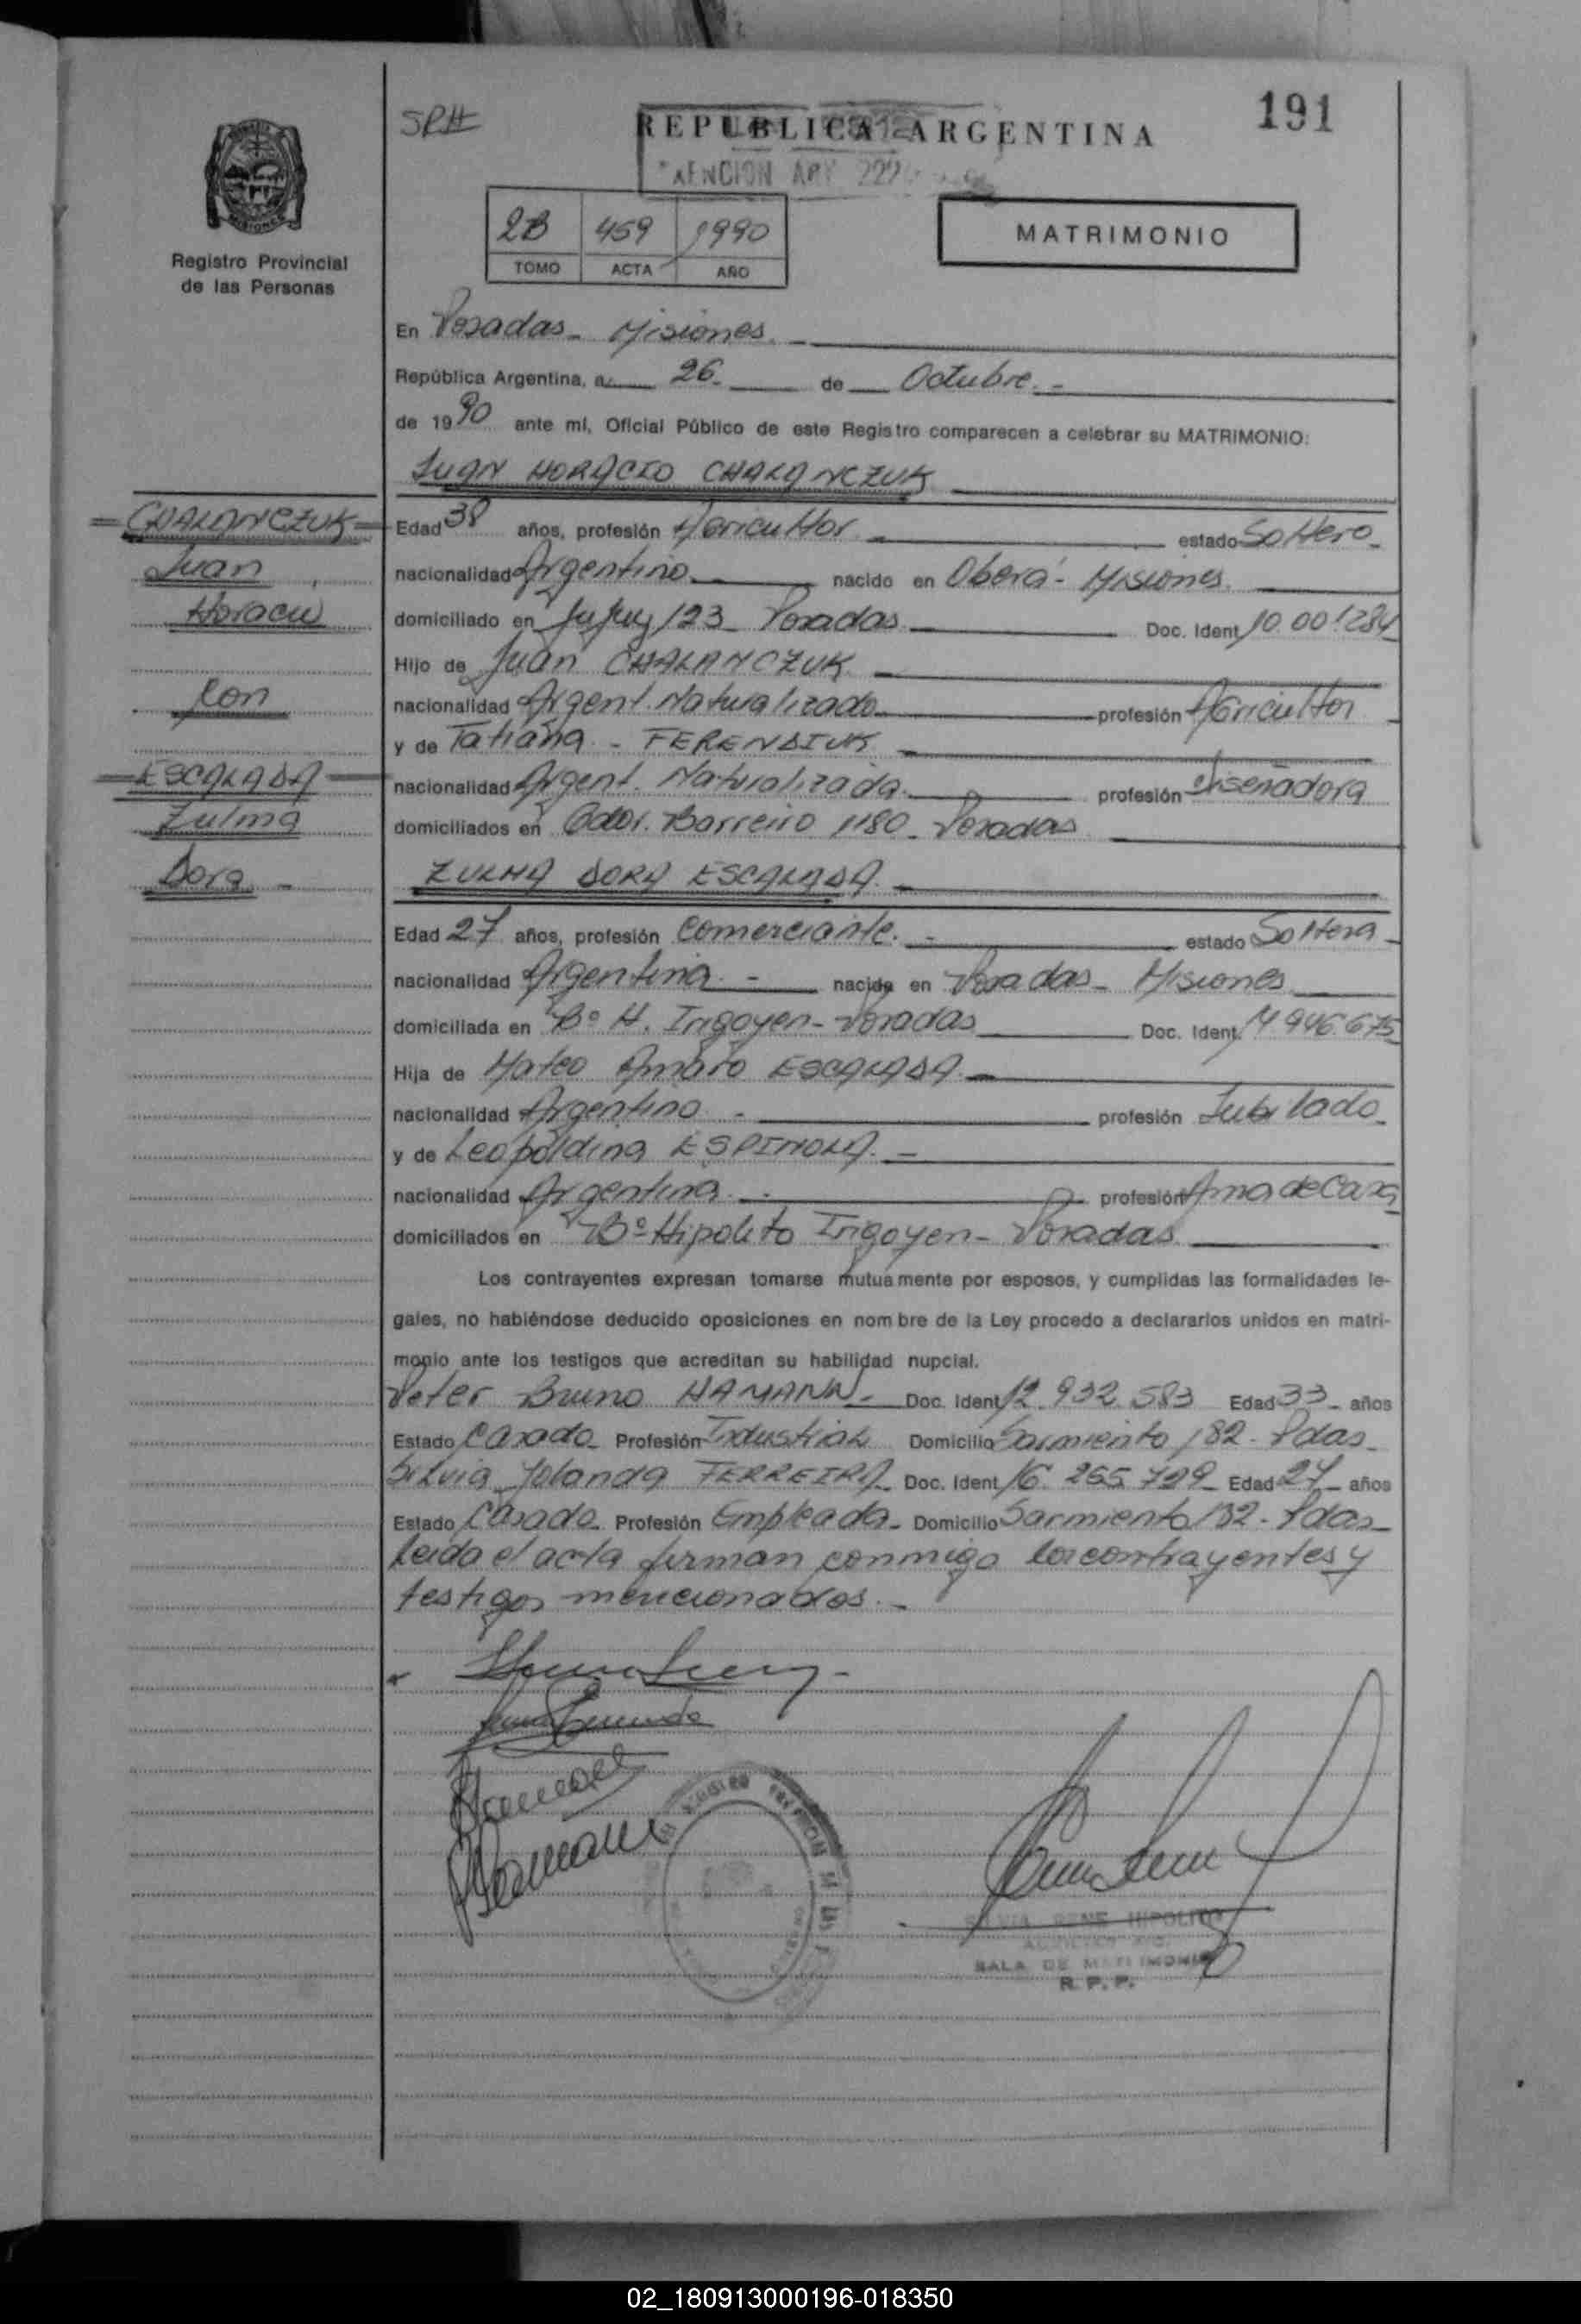 191
REPUBLICA ARGENTINA
Registro Provincial
de las Personas
2B 459 1990
TOMO ACTA AÑO
MATRIMONIO
En Posadas - Misiones. -
República Argentina, a 26 - de Octubre. -
de 1990 ante mí, Oficial Público de este Registro comparecen a celebrar su MATRIMONIO:
JUAN HORACIO CHALANCZUK
CHALANCZUK
Juan
Horacio
Con
ESCALADA
Zulma
Dora -
Edad 38 años, profesión Agricultor estado Soltero -
nacionalidad Argentino nacido en Oberá - Misiones.
domiciliado en Jujuy 123 - Posadas Doc. Ident. 10.001.284
Hijo de Juan CHALANCZUK
nacionalidad Argent. Naturalizado profesión Agricultor -
y de Tatiana - FERENDIUK
nacionalidad Argent. Naturalizada. profesión diseñadora
domiciliados en Gdor. Barreiro 1180 - Posadas
ZULMA DORA ESCALADA. -
Edad 27 años, profesión Comerciante. - estado Soltera -
nacionalidad Argentina - nacida en Posadas - Misiones
domiciliada en Bº H. Irigoyen - Posadas Doc. Ident. 946.675
Hija de Mateo Amaro ESCALADA. -
nacionalidad Argentino - profesión Jubilado -
y de Leopoldina ESPINOLA. -
nacionalidad Argentina. - profesión Ama de Casa
domiciliados en Bº Hipolito Irigoyen - Posadas
Los contrayentes expresan tomarse mutuamente por esposos, y cumplidas las formalidades le-
gales, no habiéndose deducido oposiciones en nombre de la Ley procedo a declararlos unidos en matri-
monio ante los testigos que acreditan su habilidad nupcial.
Peter Bruno HAMANN - Doc. Ident. 12.932.583 Edad 33 - años
Estado Casado - Profesión Industrial Domicilio Sarmiento 182 - Pdas -
Silvia Yolanda FERREIRA - Doc. Ident. 16.265.799 - Edad 27 - años
Estado Casada - Profesión Empleada - Domicilio Sarmiento 182 - Pdas -
Leida el acta firman conmigo los contrayentes y
testigos mencionados. -
SILVIA RENE HIPOLITO
SALA DE MATRIMONIO
R. P. P.
02_180913000196-018350